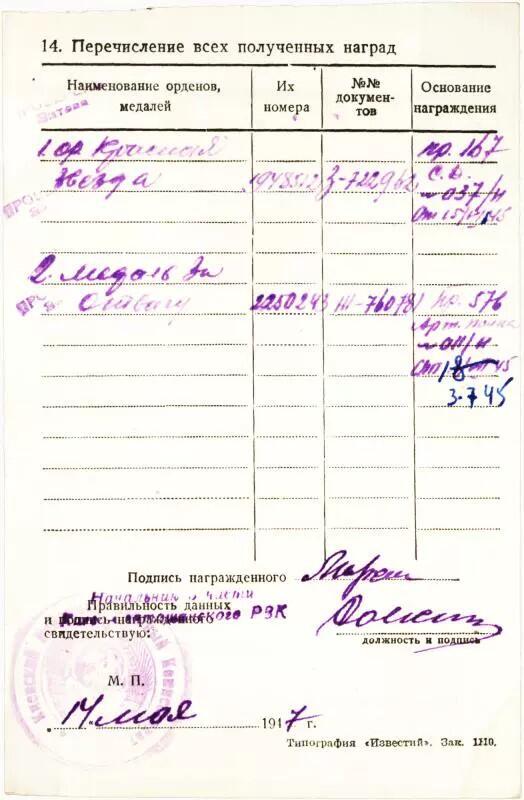 14. Перечисление всех полученных наград
Наименование орденов, медалей
Их номера
№№ документов
Основание награждения
1. ор Красная
Звезда 1948512 З-722962
пр. 167
С.Д.
~037/н
2. Медаль За
Отвагу 2250243 Ш-760781
пр. 576
Арт. полка
~011/н
3.7 45
Подпись награжденного
Начальник 3 части
Правильность данных
и подпись награжденного РВК
свидетельствую:
должность и подпись
М. П.
14. мая 1947 г.
Типография «Известий». Зак. 1210.